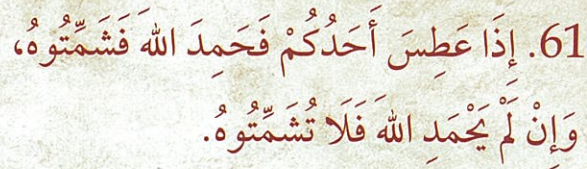 61. إِذَا عَطِسَ أَحَدُكُمْ فَحَمِدَ اللهَ فَشَمِّتُوهُ،
وَإِنْ لَمْ يَحْمَدِ اللهَ فَلَا تُشَمِّتُوهُ.